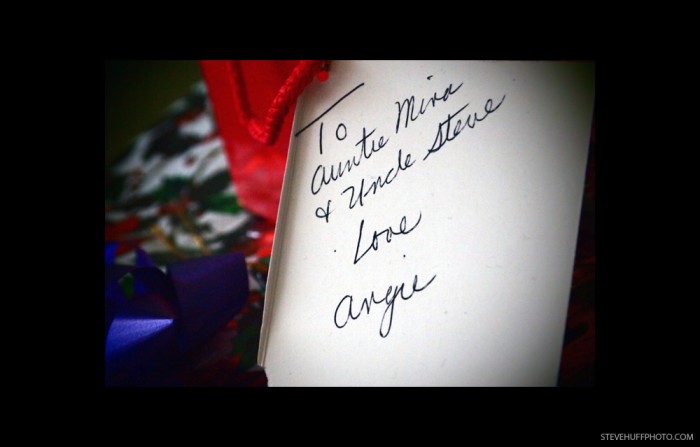 To
Auntie Mina
& Uncle Steve
Love
Angie
STEVEHUFFPHOTO.COM